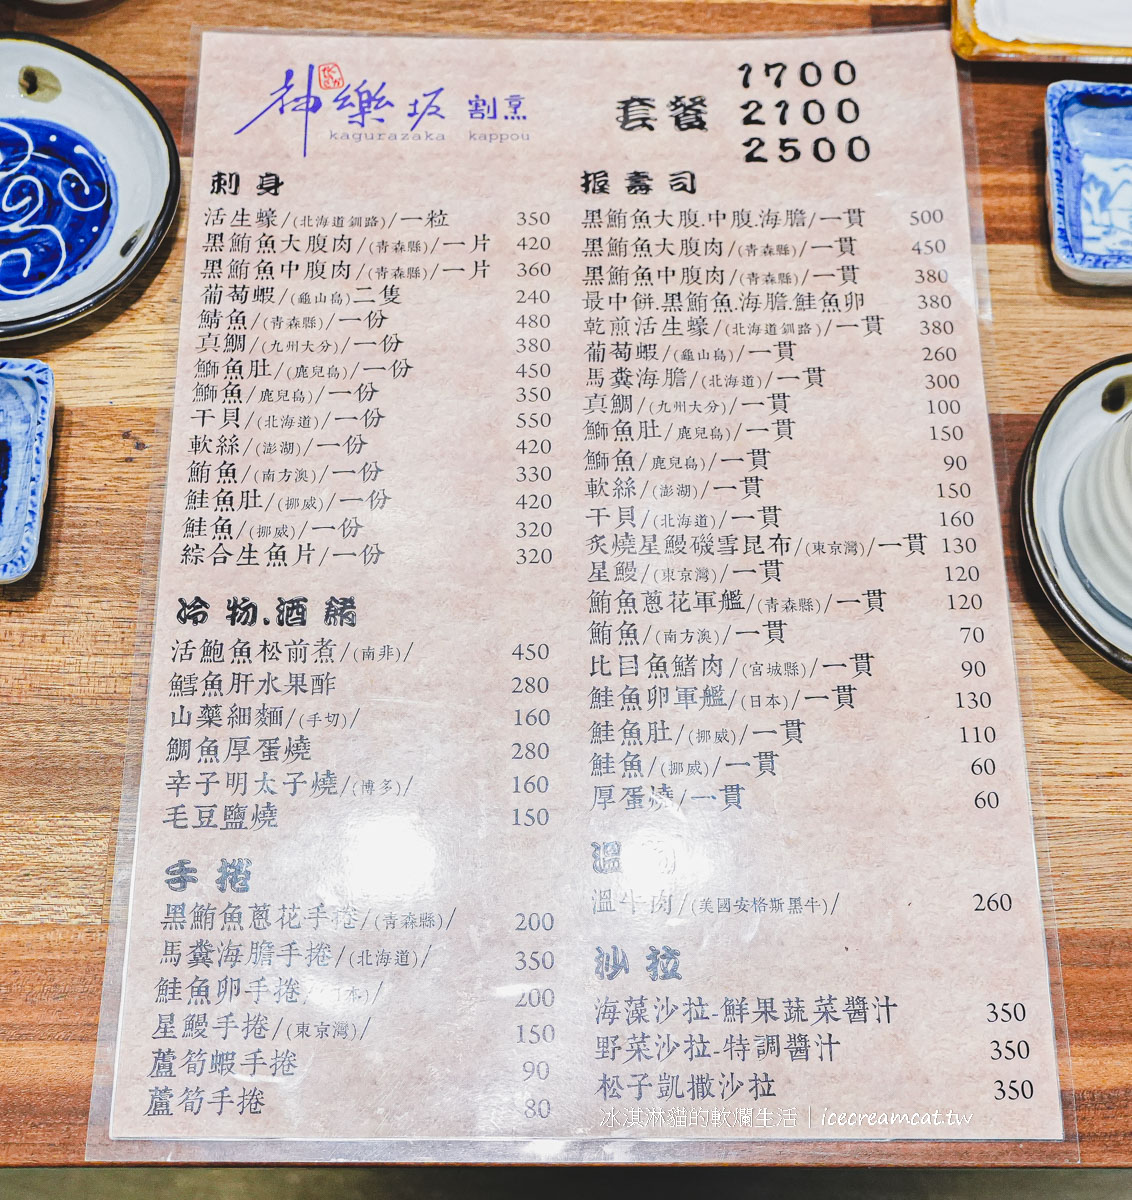 神樂坂 割烹
kagurazaka kappou
套餐
1700
2100
2500
刺身
活生蠔/(北海道釧路)/一粒 350
黑鮪魚大腹肉/(青森縣)/一片 420
黑鮪魚中腹肉/(青森縣)/一片 360
葡萄蝦/(龜山島)二隻 240
鯖魚/(青森縣)/一份 480
真鯛/(九州大分)/一份 380
鰤魚肚/(鹿兒島)/一份 450
鰤魚/鹿兒島)/一份 350
干貝/(北海道)/一份 550
軟絲/(澎湖)/一份 420
鮪魚/(南方澳)/一份 330
鮭魚肚/(挪威)/一份 420
鮭魚/(挪威)/一份 320
綜合生魚片/一份 320
冷物.酒餚
活鮑魚松前煮/(南非)/ 450
鱈魚肝水果酢 280
山藥細麵/(手切)/ 160
鯛魚厚蛋燒 280
辛子明太子燒/(博多)/ 160
毛豆鹽燒 150
手捲
黑鮪魚蔥花手捲/(青森縣)/ 200
馬糞海膽手捲/(北海道)/ 350
鮭魚卵手捲/ 本)/ 200
星鰻手捲/(東京灣)/ 150
蘆筍蝦手捲 90
蘆筍手捲 80
握壽司
黑鮪魚大腹.中腹.海膽/一貫 500
黑鮪魚大腹肉/(青森縣)/一貫 450
黑鮪魚中腹肉/(青森縣)/一貫 380
最中餅.黑鮪魚.海膽.鮭魚卵 380
乾煎活生蠔/(北海道釧路)/一貫 380
葡萄蝦/(龜山島)/一貫 260
馬糞海膽/(北海道)/一貫 300
真鯛/(九州大分)/一貫 100
鰤魚肚/鹿兒島)/一貫 150
鰤魚/鹿兒島)/一貫 90
軟絲/(澎湖)/一貫 150
干貝/(北海道)/一貫 160
炙燒星鰻磯雪昆布/(東京灣)/一貫 130
星鰻/(東京灣)/一貫 120
鮪魚蔥花軍艦/(青森縣)/一貫 120
鮪魚/(南方澳)/一貫 70
比目魚鰭肉/(宮城縣)/一貫 90
鮭魚卵軍艦/(日本)/一貫 130
鮭魚肚/(挪威)/一貫 110
鮭魚/(挪威)/一貫 60
厚蛋燒/一貫 60
溫
溫牛肉/(美國安格斯黑牛)/ 260
沙拉
海藻沙拉-鮮果蔬菜醬汁 350
野菜沙拉-特調醬汁 350
松子凱撒沙拉 350
冰淇淋貓的軟爛生活｜icecreamcat.tw